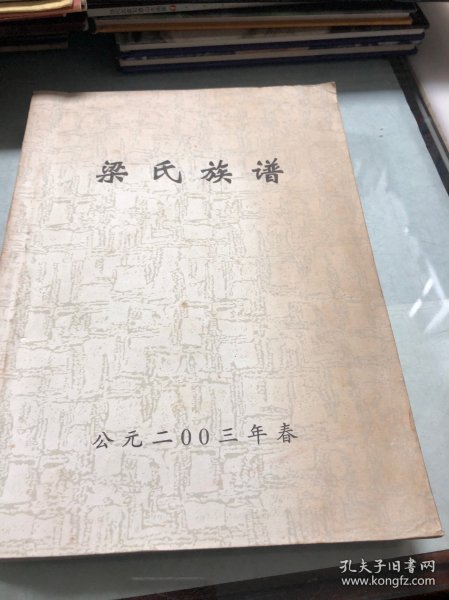 梁氏族谱
公元二00三年春
孔夫子旧书网
www.kongfz.com